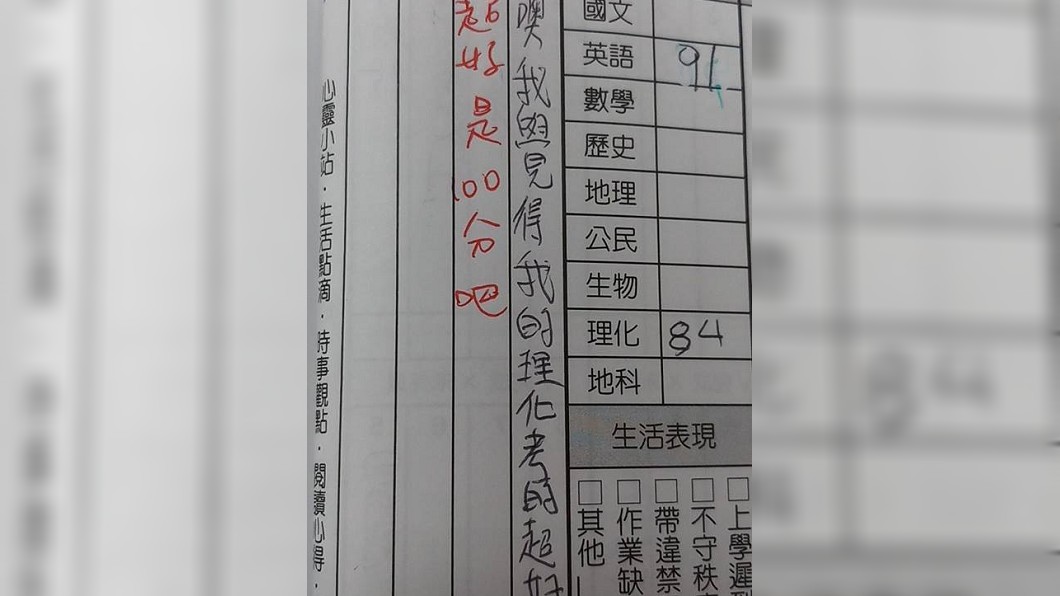 國文
英語 91
數學
歷史
地理
公民
生物
理化 84
地科
生活表現
□上學遲到
□不守秩
□帶違禁
□作業缺
□其他
噢我覺得我的理化考的超好
超好是100分吧
心靈小站．生活點滴．時事觀點．閱讀心得．